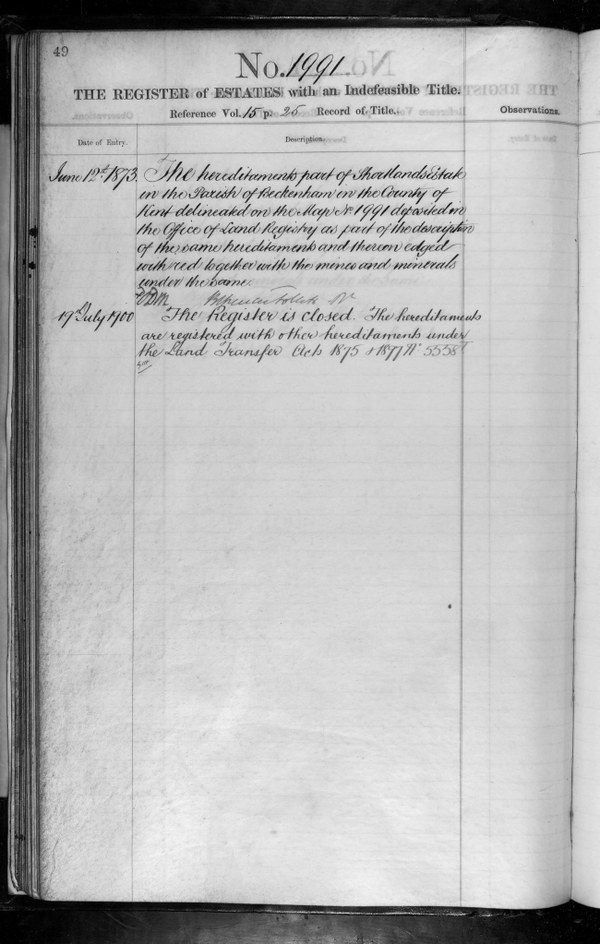 49
No. 1991.
THE REGISTER of ESTATES with an Indefeasible Title.
Reference Vol. 15 p. 25 Record of Title.
Observations.
Date of Entry.
Description.
June 12th 1873. The hereditaments part of Shortlands Estate
in the Parish of Beckenham in the County of
Kent delineated on the Map No 1991 deposited in
the Office of Land Registry as part of the description
of the same hereditaments and thereon edged
with red together with the mines and minerals
under the same.
19th July 1900 The Register is closed. The hereditaments
are registered with other hereditaments under
the Land Transfer Acts 1875 & 1897 No 5558